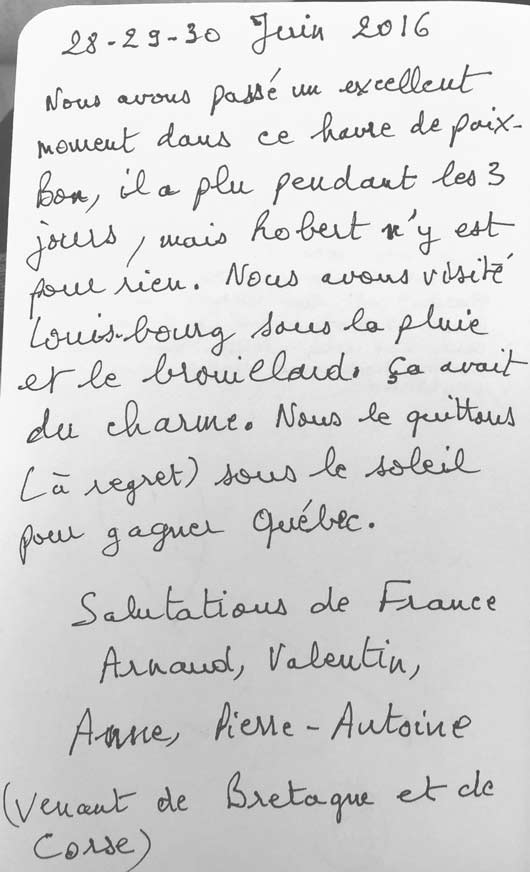 28-29-30 Juin 2016
Nous avons passé un excellent
moment dans ce havre de paix-
Bon, il a plu pendant les 3
jours, mais Robert n'y est
pour rien. Nous avons visité
Louis-bourg sous la pluie
et le brouillard. ça avait
du charme. Nous le quittons
(à regret) sous le soleil
pour gagner Québec.
Salutations de France
Arnaud, Valentin,
Anne, Pierre-Antoine
(Venant de Bretagne et de
Corse)